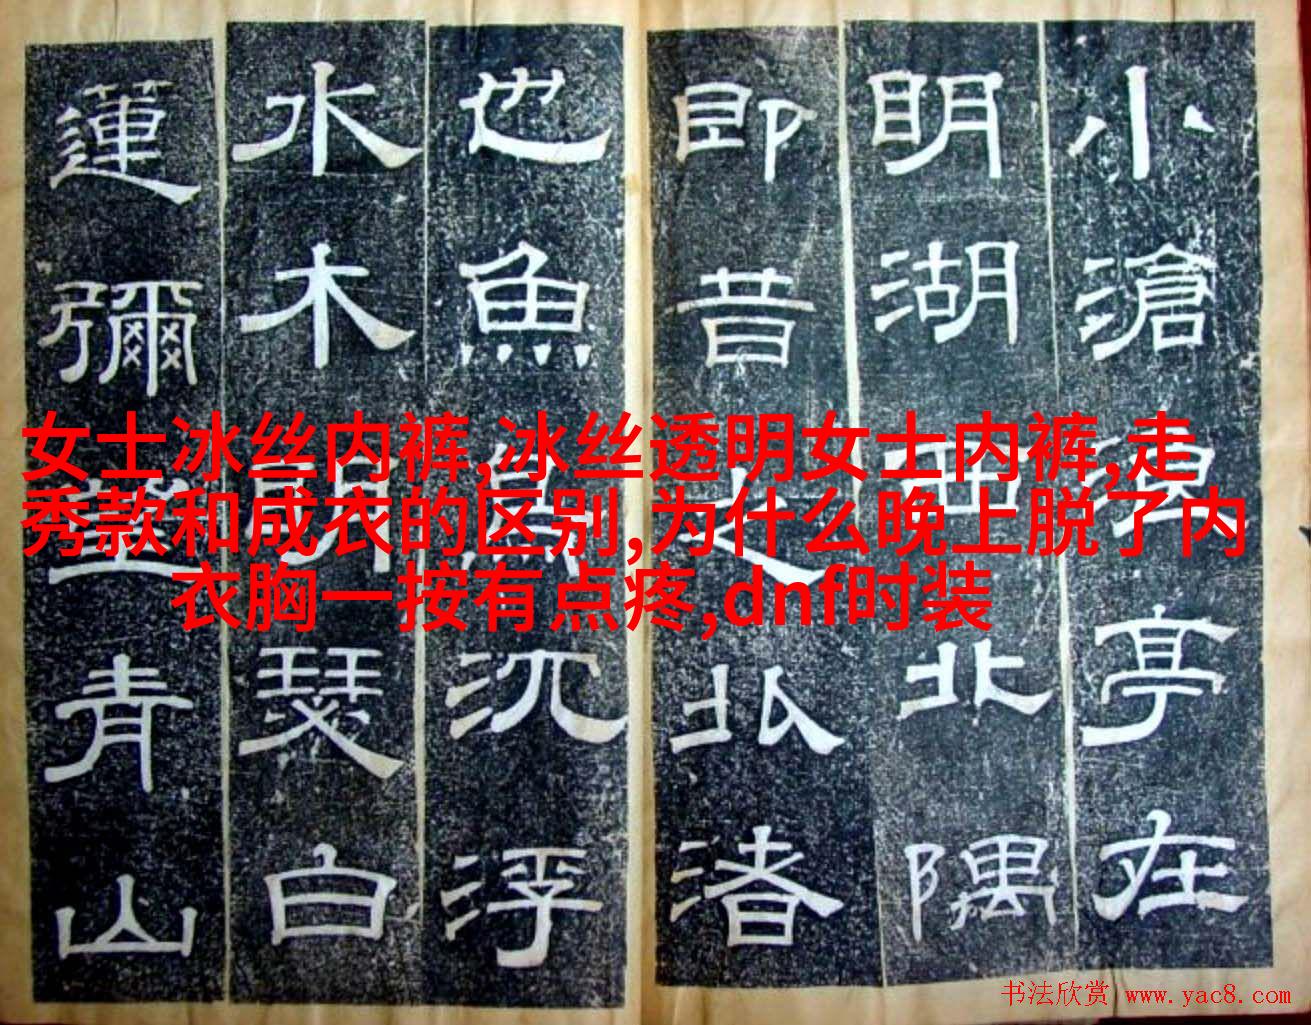 小滄浪亭在
明湖西北隅
即昔之北渚
也魚鳥沉浮
水木明瑟白
蓮彌望青山
女士冰丝内裤,冰丝透明女士内裤,走
秀款和成衣的区别,为什么晚上脱了内
衣胸一按有点疼,dnf时装
书法欣赏 www.yac8.com